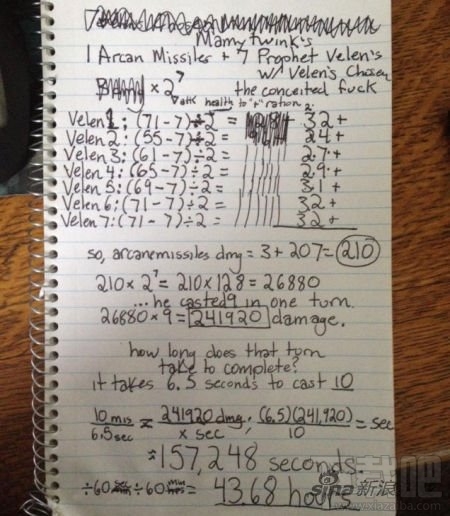 Mamytwink's
1 Arcan Missiles + 7 Prophet Velen's
w/ Velen's Chosen
× 2⁷ the conceited fuck
atk health to "+" ration
Velen 1: (71-7)÷2 = 32+
Velen 2: (55-7)÷2 = 24+
Velen 3: (61-7)÷2 = 27+
Velen 4: (65-7)÷2 = 29+
Velen 5: (69-7)÷2 = 31+
Velen 6: (71-7)÷2 = 32+
Velen 7: (71-7)÷2 = 32+
so, arcanemissiles dmg = 3 + 207 = 210
210 × 2⁷ = 210 × 128 = 26880
...he casted 9 in one turn.
26880 × 9 = 241920 damage.
how long does that turn
take to complete?
it takes 6.5 seconds to cast 10
10 mis / 6.5 sec = 241920 dmg / x sec ; (6.5)(241,920) / 10 = sec
≈ 157,248 seconds.
÷60 ÷60 = 43.68 hours
sina新浪